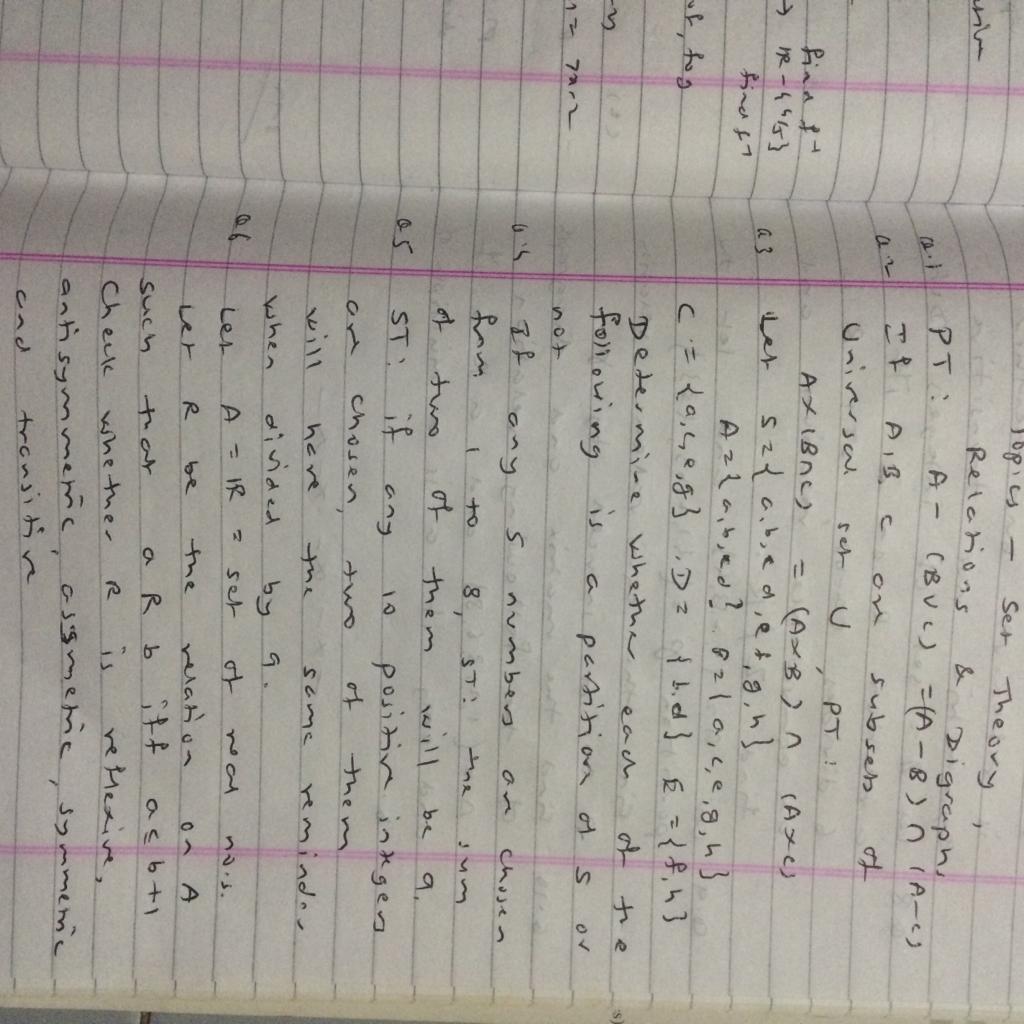 Topics - Set Theory,
Relations & Digraphs
Q.1 PT: A - (B∪C) = (A-B) ∩ (A-C)
Q.2 If A, B, C are subsets of
Universal set U, PT:
A×(B∩C) = (A×B) ∩ (A×C)
find f⁻¹
Q3 Let S={a,b,c,d,e,f,g,h}
find f⁻¹
A={a,b,c,d} B={a,c,e,g,h}
of, fog
C = {a,c,e,g}, D= {b,d} E = {f,h}
Determine whether each of the
following is a partition of S or
not
Q.4 If any 5 numbers are chosen
from 1 to 8, ST: the sum
of two of them will be 9.
Q5 ST: if any 10 positive integers
are chosen, two of them
will have the same reminder
when divided by 9.
Q6 Let A = IR = set of real no.s.
Let R be the relation on A
such that a R b iff a ≤ b+1
Check whether R is reflexive,
antisymmetric, assmetric, symmetric
and transitive